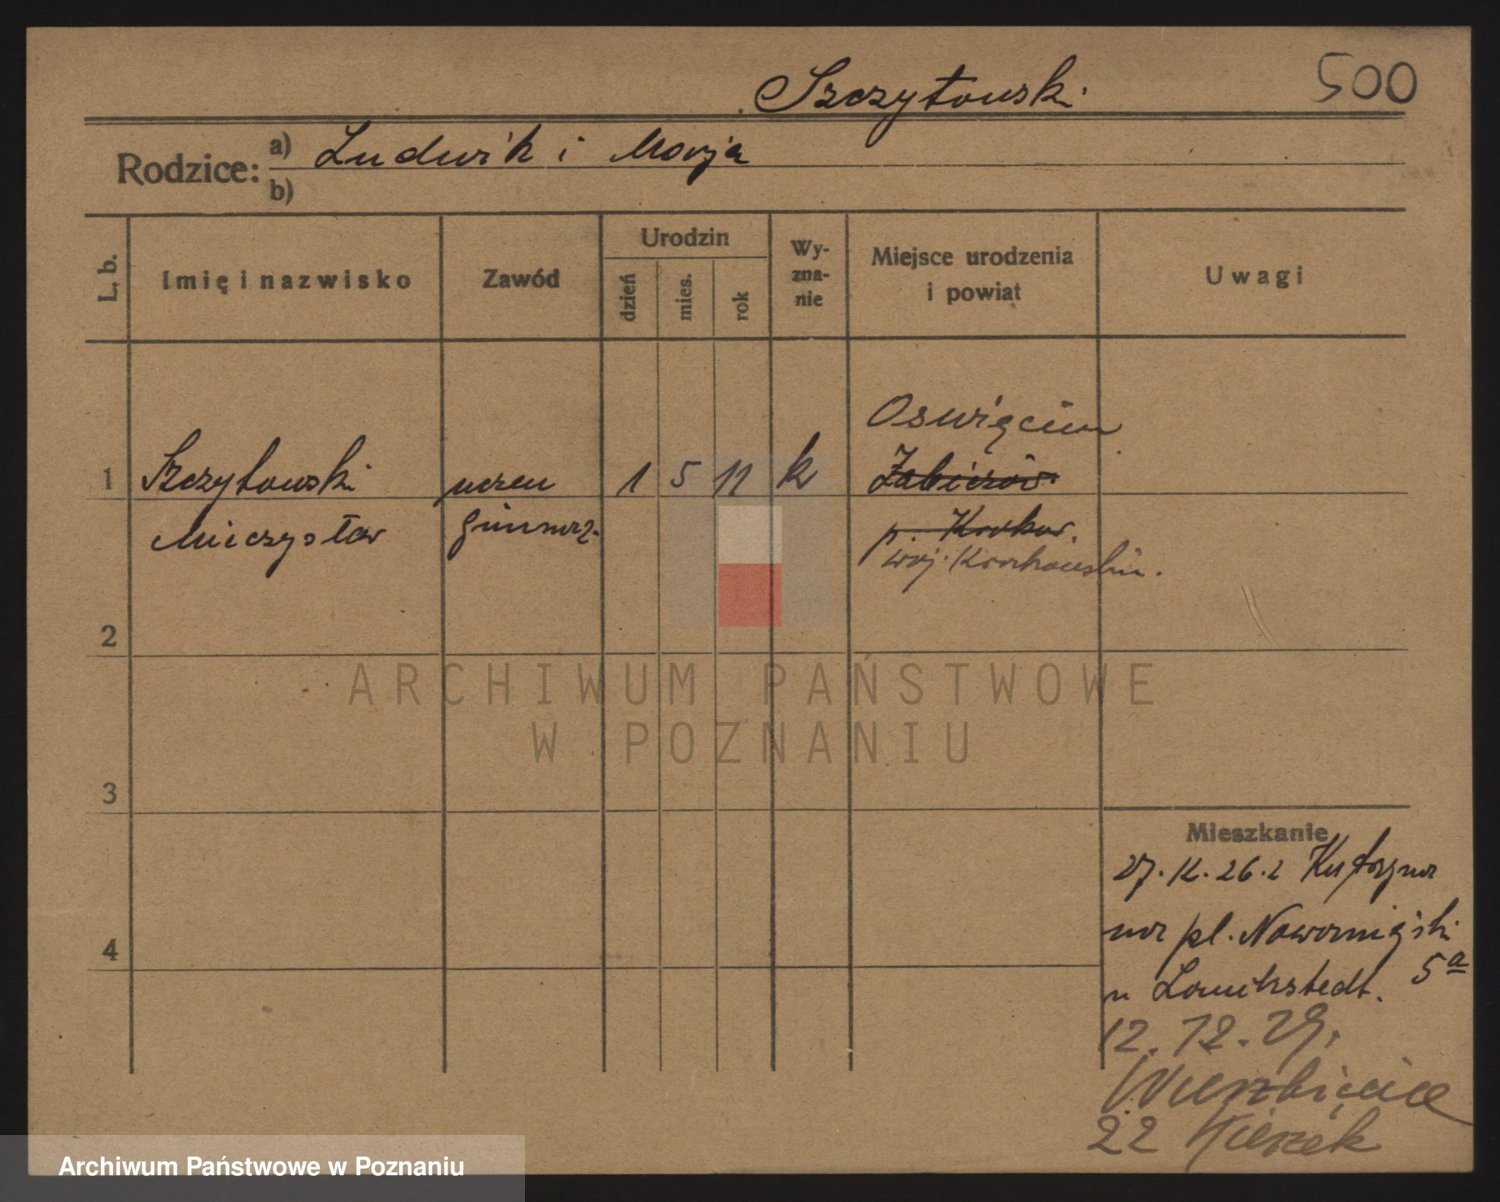 Szczytowski
500
Rodzice: a) Ludwik i Marja
b)
L. b.
Imię i nazwisko
Zawód
Urodzin
dzień
mies.
rok
Wy-
zna-
nie
Miejsce urodzenia
i powiat
Uwagi
Oświęcim
1 Szczytowski uczeń 1 5 11 k Zabierzów
Mieczysław gimnaz. p. Kraków.
woj. Krakowskie.
2
3
4
ARCHIWUM PAŃSTWOWE
W POZNANIU
Mieszkanie
27. 12. 26. z
na pl. Nowomiejski
5a
u
12. 12. 29.
Wierzbięcice
22
Archiwum Państwowe w Poznaniu